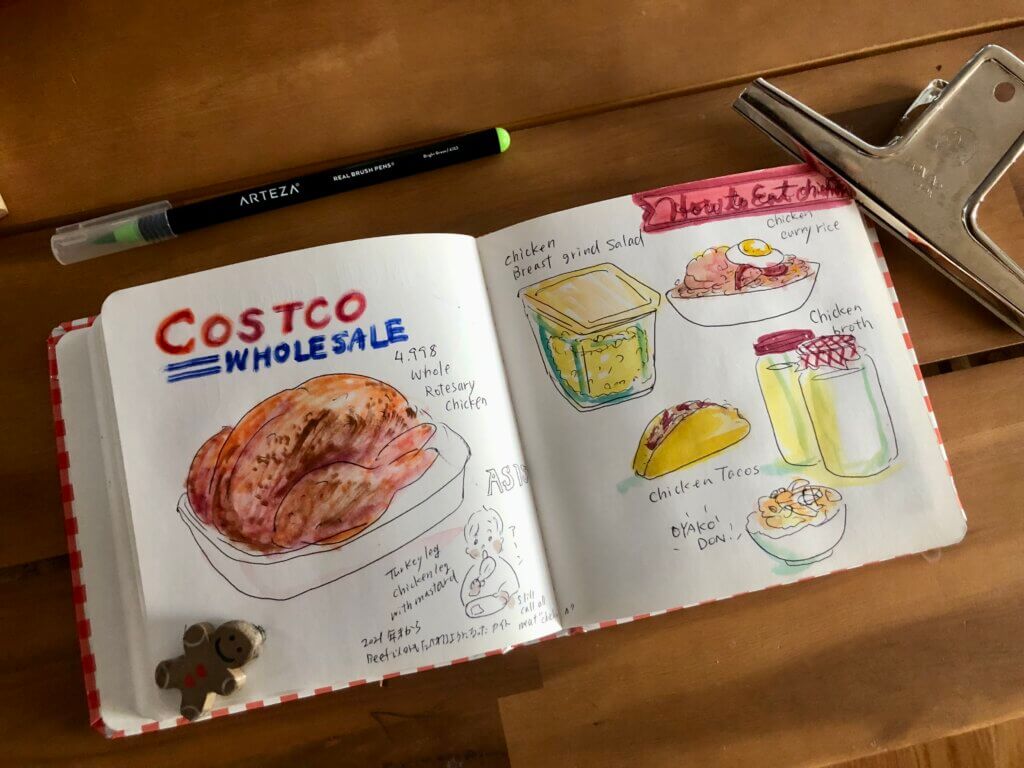 ARTEZA
REAL BRUSH PENS®
Bright Green
COSTCO
WHOLESALE
4.998
Whole
Rotesary
Chicken
AS IS
Turkey leg
chicken leg
with mustard
?
Still
call all
meat
2021年末から
Beef
How to Eat
chicken
Breast grind Salad
Chicken
curry rice
Chicken
broth
Chicken Tacos
OYAKO
DON